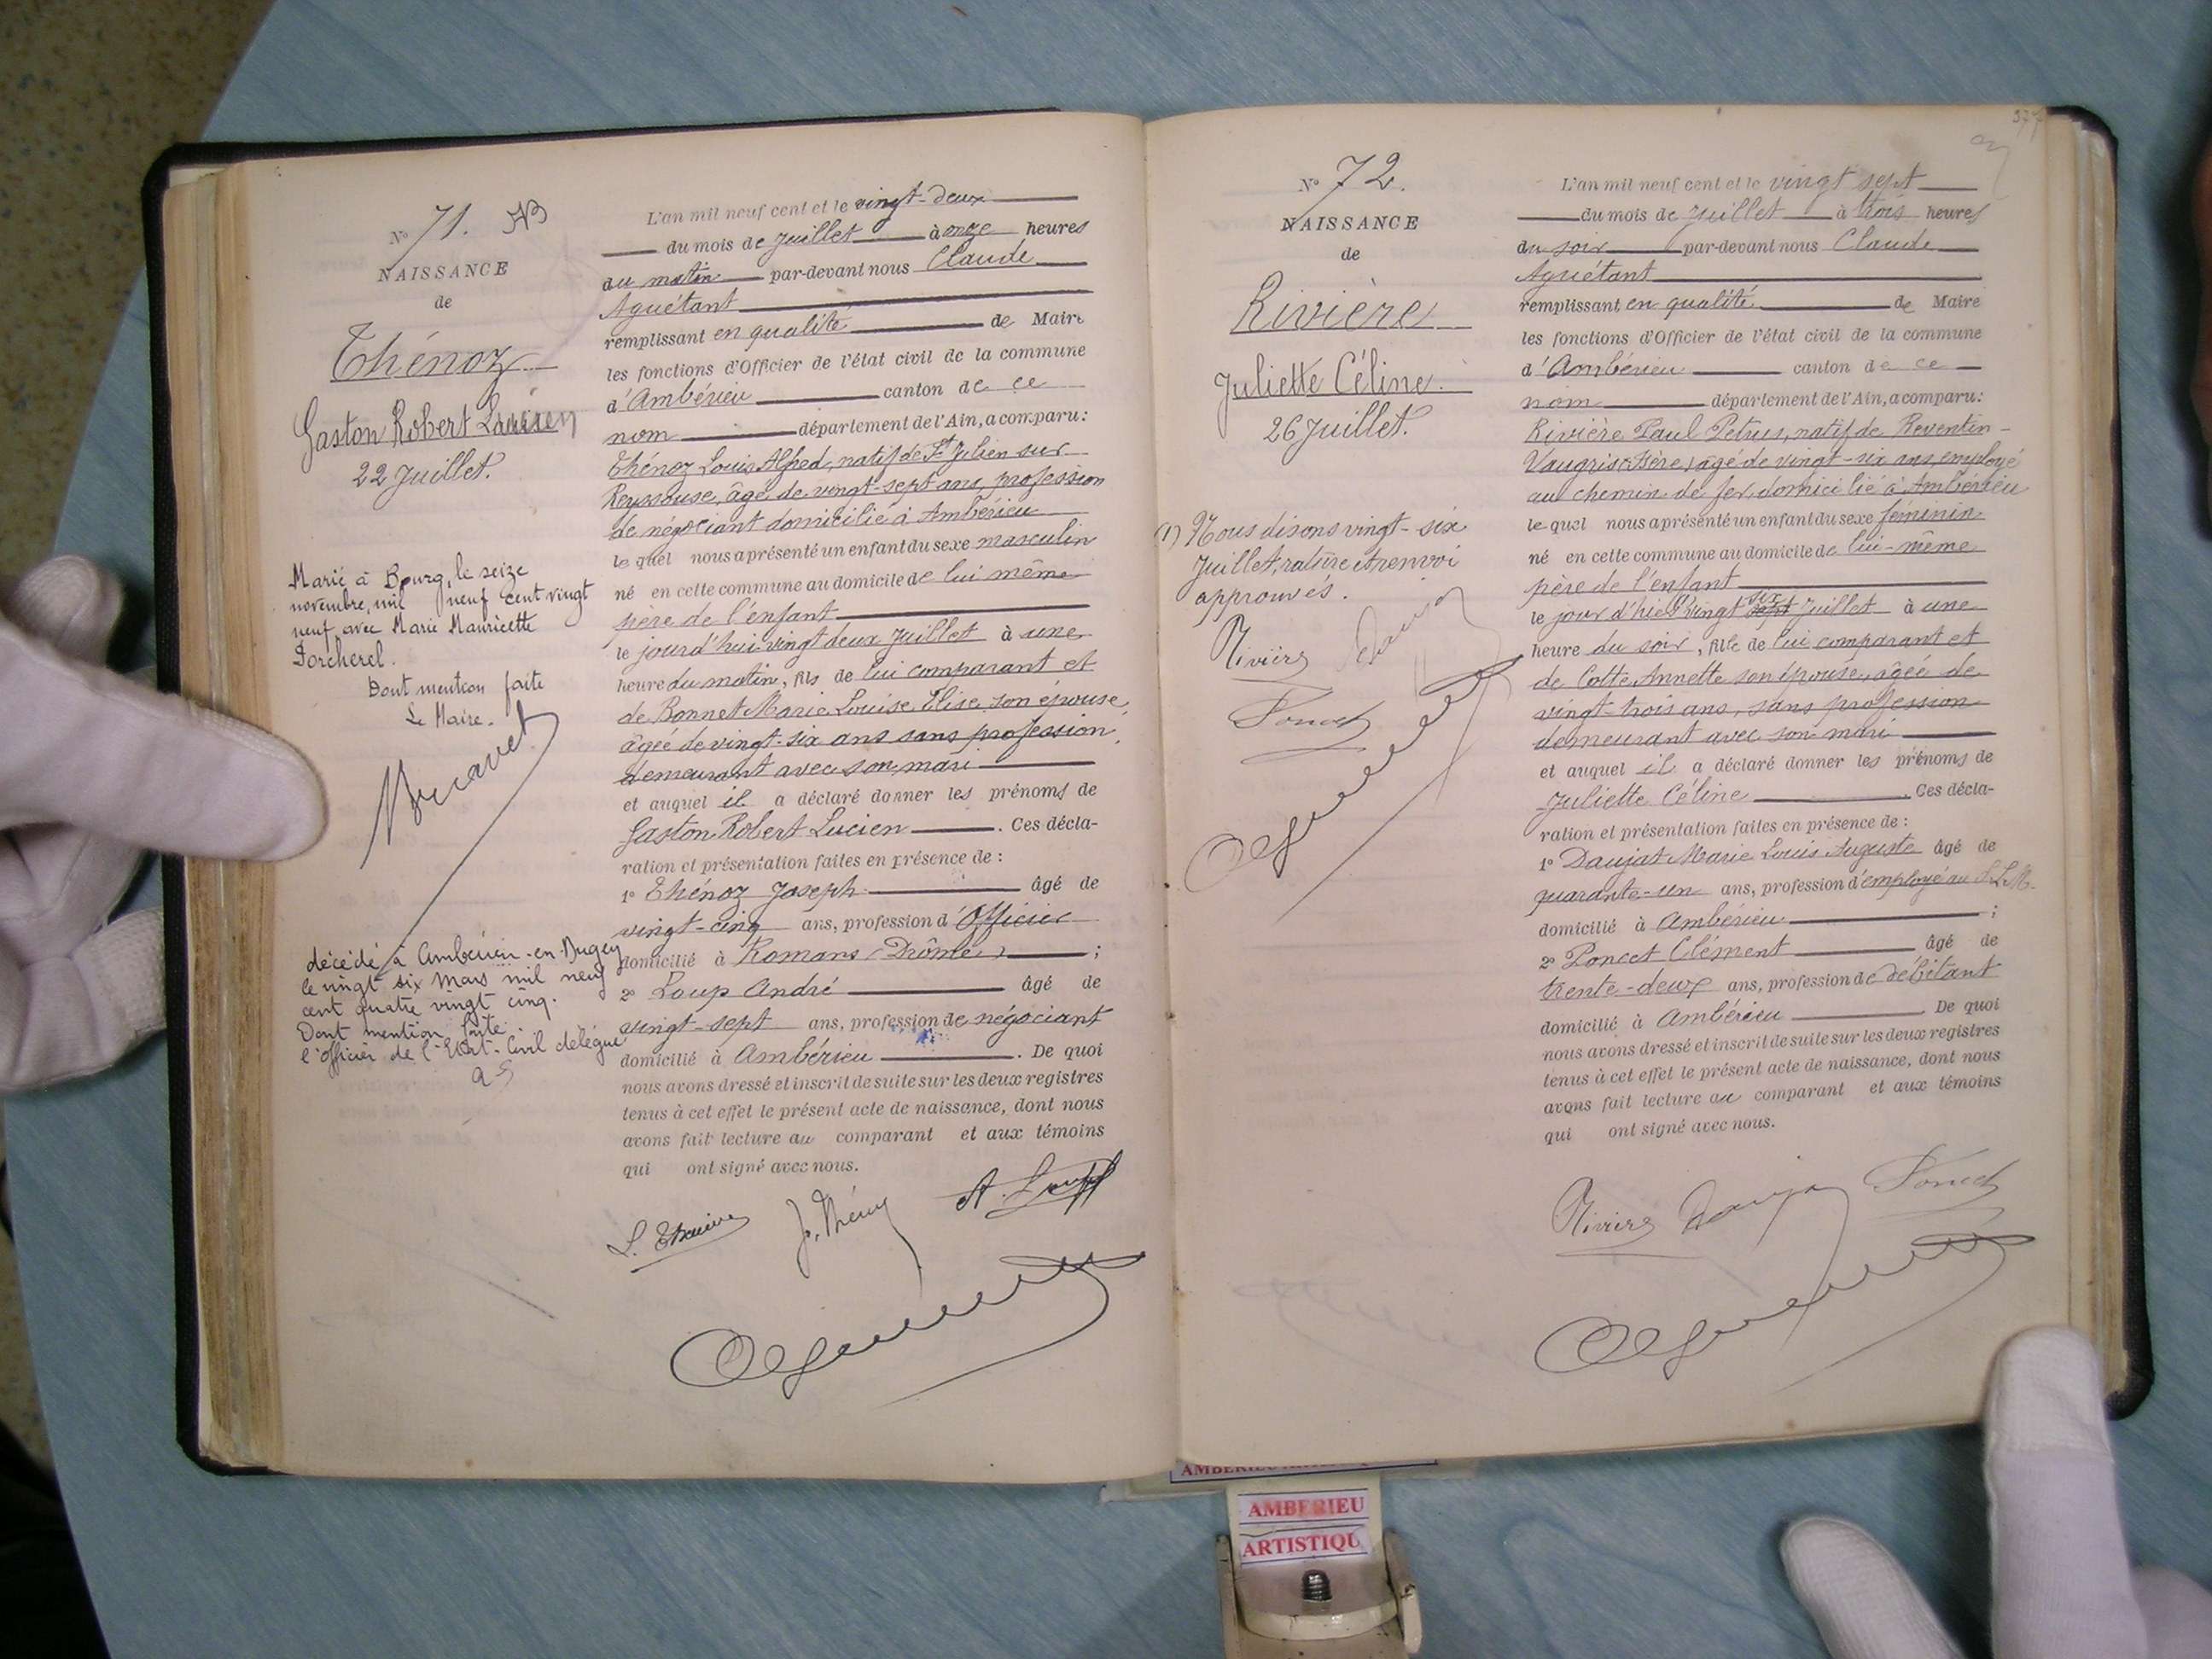 N° 71. NB
NAISSANCE
de
Thénoz
Gaston Robert Lucien
22 Juillet.
Marié à Bourg, le seize
novembre, mil neuf cent vingt
neuf, avec Marie Mauricette
Porcherel.
Dont mention faite
Le Maire.
décédé à Ambérieu-en-Bugey
le vingt six Mars mil neuf
cent quatre vingt cinq.
Dont mention faite
l'officier de l'Etat-Civil délégué
L'an mil neuf cent et le vingt-deux
du mois de Juillet à onze heures
du matin par-devant nous Claude
Aguétant
remplissant en qualité de Maire
les fonctions d'Officier de l'état civil de la commune
d'Ambérieu canton de ce
nom département de l'Ain, a comparu:
Thénoz Louis Alfred, natif de St Julien sur
Reyssouse, âgé de vingt-sept ans, profession
de négociant domicilié à Ambérieu
lequel nous a présenté un enfant du sexe masculin
né en cette commune au domicile de lui même
père de l'enfant
le jourd'hui vingt deux Juillet à une
heure du matin, fils de lui comparant et
de Bonnet Marie Louise Elise son épouse,
âgée de vingt-six ans sans profession,
demeurant avec son mari
et auquel il a déclaré donner les prénoms de
Gaston Robert Lucien. Ces décla-
ration et présentation faites en présence de :
1° Thénoz Joseph âgé de
vingt-cinq ans, profession d'Officier
domicilié à Romans (Drôme) ;
2° Loup André âgé de
vingt-sept ans, profession de négociant
domicilié à Ambérieu. De quoi
nous avons dressé et inscrit de suite sur les deux registres
tenus à cet effet le présent acte de naissance, dont nous
avons fait lecture au comparant et aux témoins
qui ont signé avec nous.
A. Loup
377
N° 72.
NAISSANCE
de
Rivière
Juliette Céline.
26 Juillet.
(1) Nous disons vingt-six
Juillet, rature et renvoi
approuvés.
Rivière
Poncet
L'an mil neuf cent et le vingt sept
du mois de Juillet à trois heures
du soir par-devant nous Claude
Aguétant
remplissant en qualité de Maire
les fonctions d'Officier de l'état civil de la commune
d'Ambérieu canton de ce
nom département de l'Ain, a comparu:
Rivière Paul Petrus, natif de Reventin-
Vaugris (Isère) âgé de vingt-six ans, employé
au chemin de fer, domicilié à Ambérieu
lequel nous a présenté un enfant du sexe féminin
né en cette commune au domicile de lui-même
père de l'enfant
le jour d'hier vingt six sept Juillet à une
heure du soir, fille de lui comparant et
de Cotte Annette son épouse, âgée de
vingt-trois ans, sans profession
demeurant avec son mari
et auquel il a déclaré donner les prénoms de
Juliette Céline. Ces décla-
ration et présentation faites en présence de :
1° Daujat Marie Louis Auguste âgé de
quarante-un ans, profession d'employé au P.L.M.
domicilié à Ambérieu ;
2° Poncet Clément âgé de
trente-deux ans, profession de débitant
domicilié à Ambérieu. De quoi
nous avons dressé et inscrit de suite sur les deux registres
tenus à cet effet le présent acte de naissance, dont nous
avons fait lecture au comparant et aux témoins
qui ont signé avec nous.
Rivière Daujat Poncet
AMBERIEU
ARTISTIQU